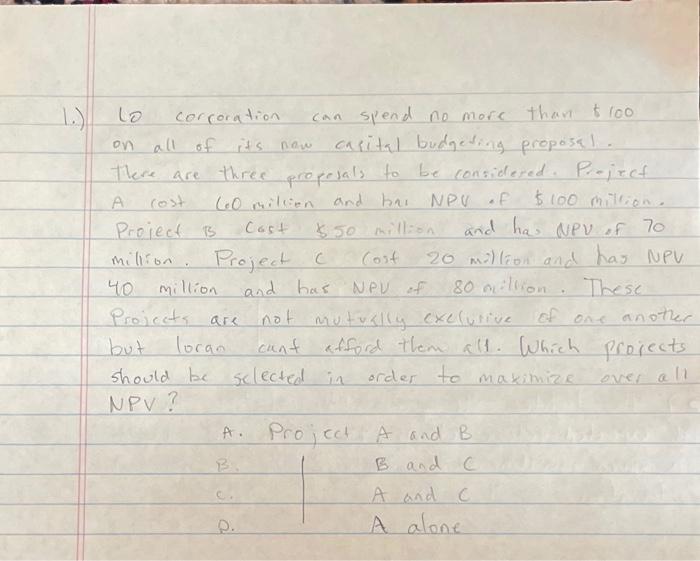 1.) LO corroration can spend no more than $100
on all of its new casital budgeting proposal.
There are three proposals to be considered. Project
A cost 60 million and has NPV of $100 million.
Project B Cost $50 million and has NPV of 70
million. Project C Cost 20 million and has NPV
40 million and has NPV of 80 million. These
Projects are not mutually exclusive of one another
but loran cant afford them all. Which projects
should be selected in order to maximize over all
NPV?
A. Project A and B
B. B and C
C. A and C
D. A alone